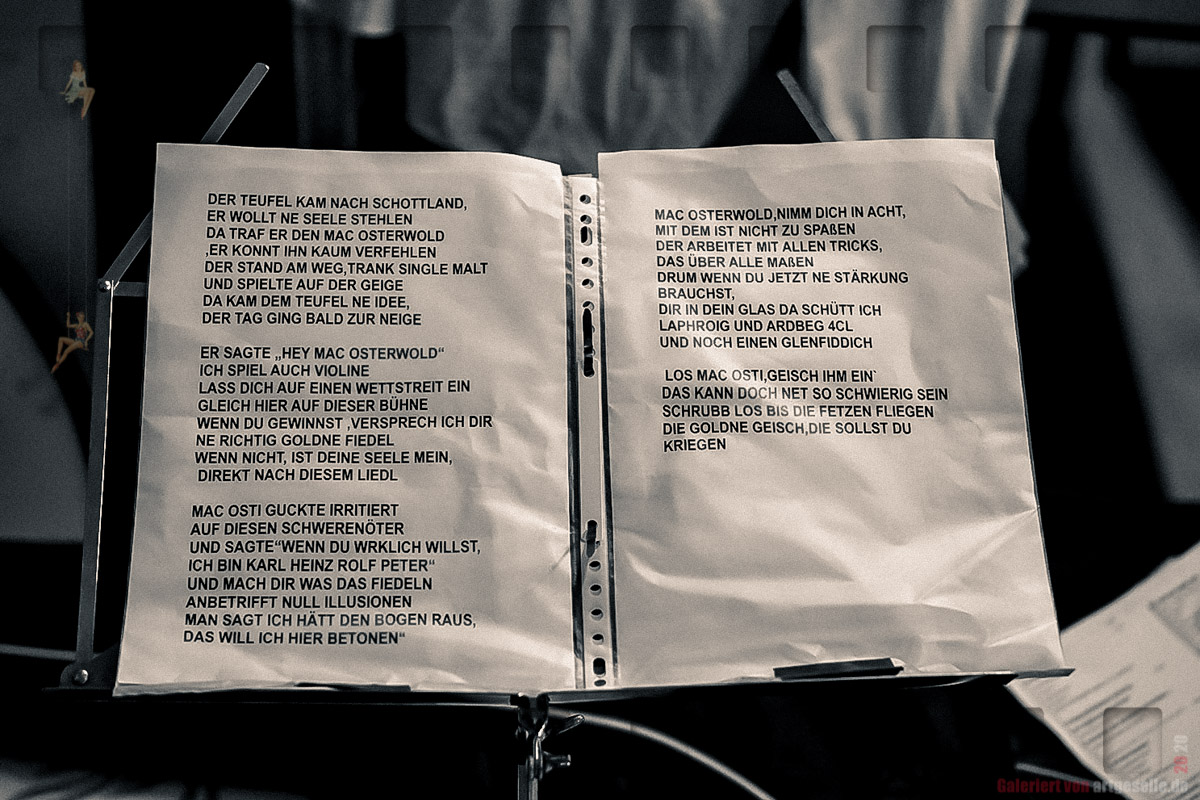 DER TEUFEL KAM NACH SCHOTTLAND,
ER WOLLT NE SEELE STEHLEN
DA TRAF ER DEN MAC OSTERWOLD
,ER KONNT IHN KAUM VERFEHLEN
DER STAND AM WEG,TRANK SINGLE MALT
UND SPIELTE AUF DER GEIGE
DA KAM DEM TEUFEL NE IDEE,
DER TAG GING BALD ZUR NEIGE
ER SAGTE „HEY MAC OSTERWOLD“
ICH SPIEL AUCH VIOLINE
LASS DICH AUF EINEN WETTSTREIT EIN
GLEICH HIER AUF DIESER BÜHNE
WENN DU GEWINNST ,VERSPRECH ICH DIR
NE RICHTIG GOLDNE FIEDEL
WENN NICHT, IST DEINE SEELE MEIN,
DIREKT NACH DIESEM LIEDL
MAC OSTI GUCKTE IRRITIERT
AUF DIESEN SCHWERENÖTER
UND SAGTE“WENN DU WRKLICH WILLST,
ICH BIN KARL HEINZ ROLF PETER“
UND MACH DIR WAS DAS FIEDELN
ANBETRIFFT NULL ILLUSIONEN
MAN SAGT ICH HÄTT DEN BOGEN RAUS,
DAS WILL ICH HIER BETONEN“
MAC OSTERWOLD,NIMM DICH IN ACHT,
MIT DEM IST NICHT ZU SPAßEN
DER ARBEITET MIT ALLEN TRICKS,
DAS ÜBER ALLE MAßEN
DRUM WENN DU JETZT NE STÄRKUNG
BRAUCHST,
DIR IN DEIN GLAS DA SCHÜTT ICH
LAPHROIG UND ARDBEG 4CL
UND NOCH EINEN GLENFIDDICH
LOS MAC OSTI,GEISCH IHM EIN`
DAS KANN DOCH NET SO SCHWIERIG SEIN
SCHRUBB LOS BIS DIE FETZEN FLIEGEN
DIE GOLDNE GEISCH,DIE SOLLST DU
KRIEGEN
Galeriert von artgeselle.de